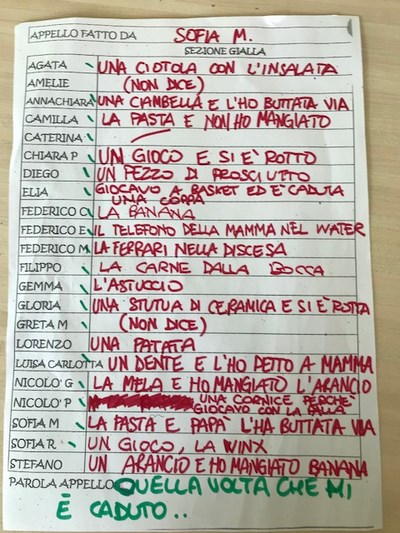 APPELLO FATTO DA SOFIA M.
SEZIONE GIALLA
AGATA UNA CIOTOLA CON L'INSALATA
AMELIE (NON DICE)
ANNACHIARA UNA CIAMBELLA E L'HO BUTTATA VIA
CAMILLA LA PASTA E NON HO MANGIATO
CATERINA
CHIARA P UN GIOCO E SI È ROTTO
DIEGO UN PEZZO DI PROSCIUTTO
ELIA GIOCAVO A BASKET ED È CADUTA
UNA COPPA
FEDERICO C LA BANANA
FEDERICO E IL TELEFONO DELLA MAMMA NEL WATER
FEDERICO M LA FERRARI NELLA DISCESA
FILIPPO LA CARNE DALLA BOCCA
GEMMA L'ASTUCCIO
GLORIA UNA STUTUA DI CERAMICA E SI È ROTTA
GRETA M (NON DICE)
LORENZO UNA PATATA
LUISA CARLOTTA UN DENTE E L'HO DETTO A MAMMA
NICOLO' G LA MELA E HO MANGIATO L'ARANCIO
NICOLO' P UNA CORNICE PERCHÈ
GIOCAVO CON LA PALLA
SOFIA M LA PASTA E PAPÀ L'HA BUTTATA VIA
SOFIA R UN GIOCO, LA WINX
STEFANO UN ARANCIO E HO MANGIATO BANANA
PAROLA APPELLO QUELLA VOLTA CHE MI
È CADUTO..